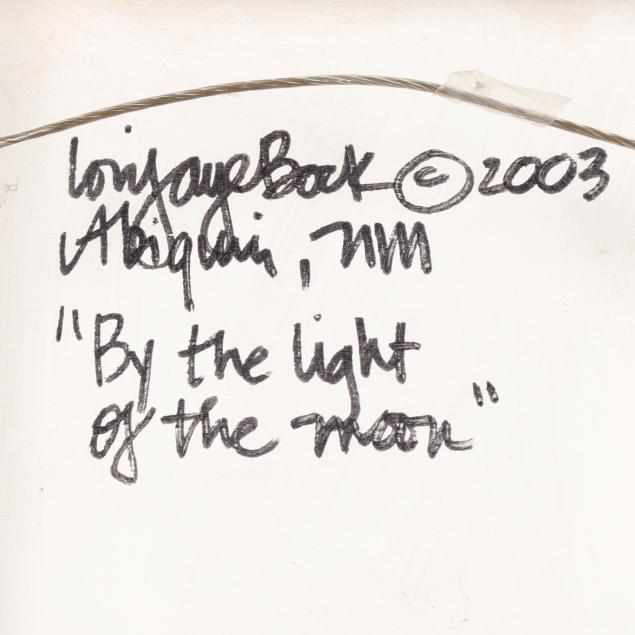 Lori Faye Bock © 2003
Abiquiu, NM
"By the light
of the moon"